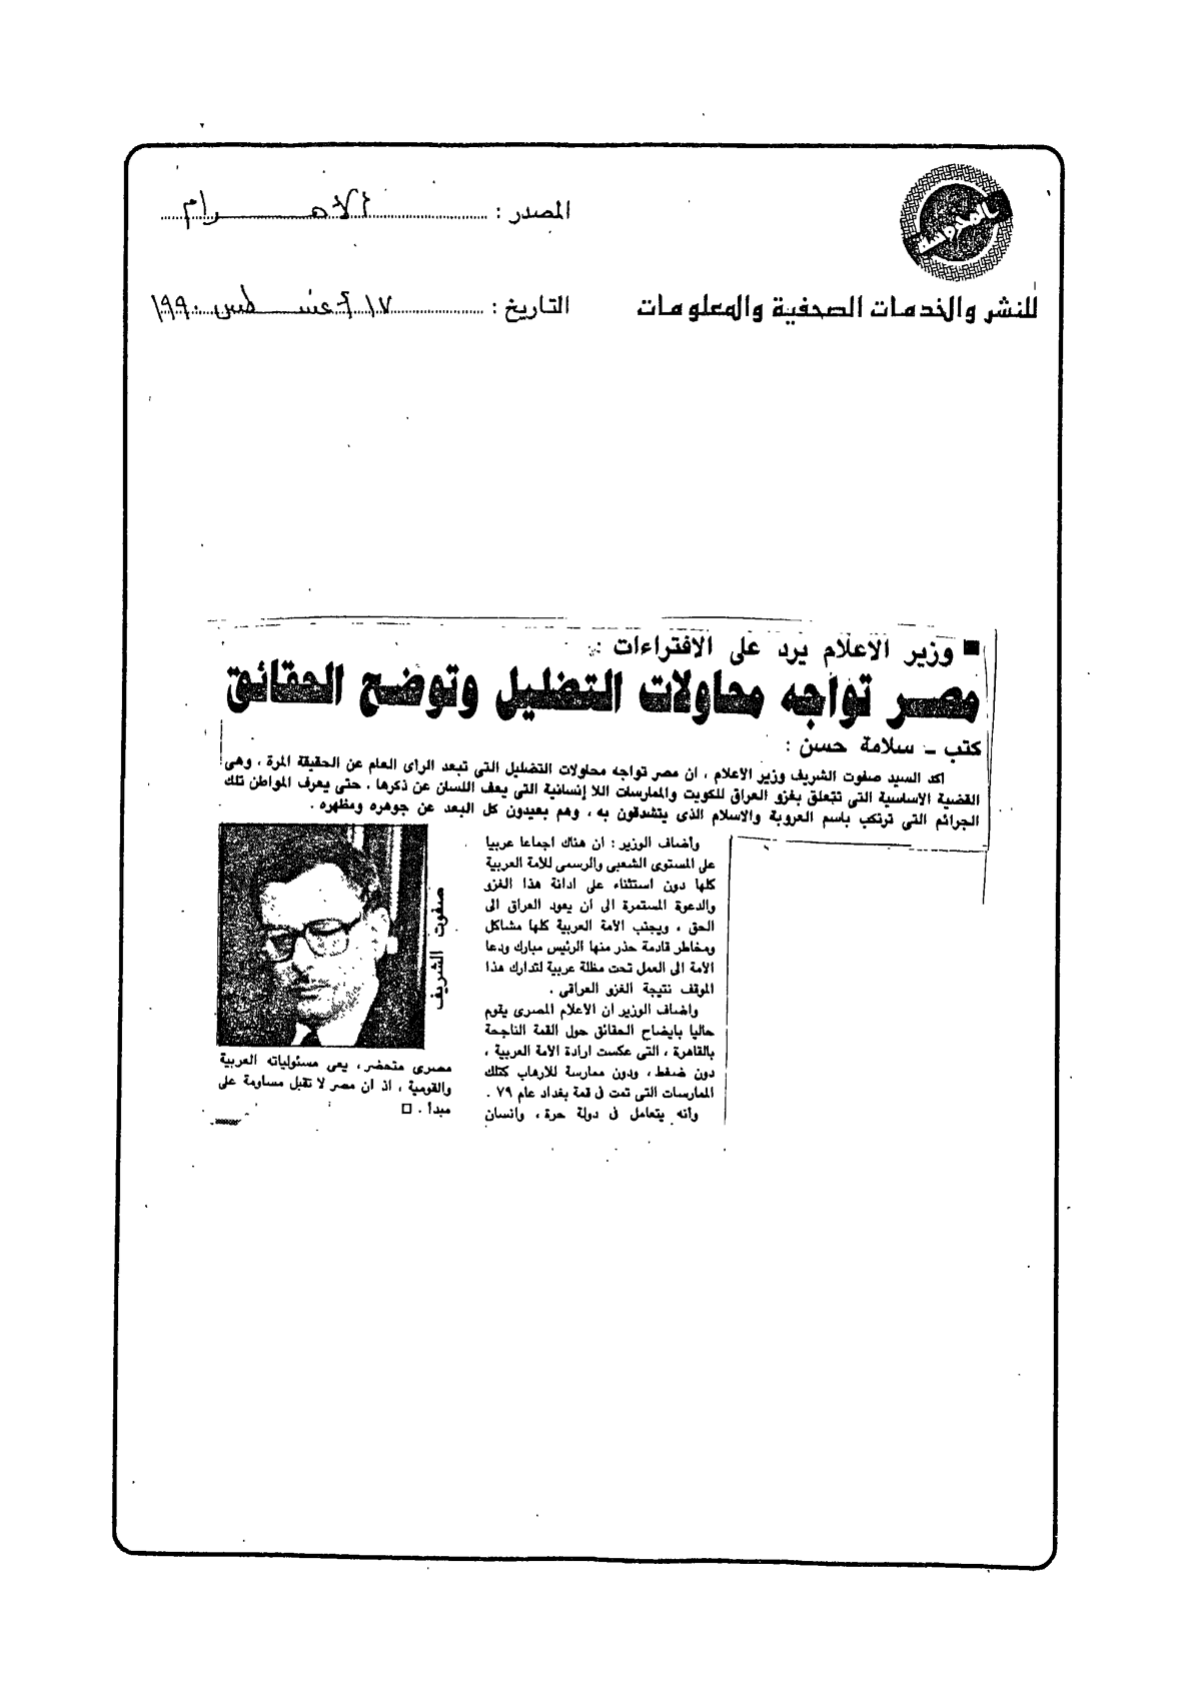 بالمحروسة
للنشر والخدمات الصحفية والمعلومات
المصدر : الأهرام
التاريخ : ١٧ أغسطس ١٩٩٠
■ وزير الاعلام يرد على الافتراءات :
مصر تواجه محاولات التضليل وتوضح الحقائق
كتب ـ سلامة حسن :
اكد السيد صفوت الشريف وزير الاعلام ، ان مصر تواجه محاولات التضليل التى تبعد الرأى العام عن الحقيقة المرة ، وهى
القضية الاساسية التى تتعلق بغزو العراق للكويت والممارسات اللا إنسانية التى يعف اللسان عن ذكرها . حتى يعرف المواطن تلك
الجرائم التى ترتكب باسم العروبة والاسلام الذى يتشدقون به ، وهم بعيدون كل البعد عن جوهره ومظهره .
وأضاف الوزير : ان هناك اجماعا عربيا
على المستوى الشعبى والرسمى للأمة العربية
كلها دون استثناء على ادانة هذا الغزو
والدعوة المستمرة الى ان يعود العراق الى
الحق ، ويجنب الأمة العربية كلها مشاكل
ومخاطر قادمة حذر منها الرئيس مبارك ودعا
الأمة الى العمل تحت مظلة عربية لتدارك هذا
الموقف نتيجة الغزو العراقى .
واضاف الوزير ان الاعلام المصرى يقوم
حاليا بايضاح الحقائق حول القمة الناجحة
بالقاهرة ، التى عكست ارادة الأمة العربية ،
دون ضغط ، ودون ممارسة للارهاب كتلك
الممارسات التى تمت فى قمة بغداد عام ٧٩ .
وأنه يتعامل فى دولة حرة ، وانسان
صفوت الشريف
مصرى متحضر ، يعى مسئولياته العربية
والقومية ، اذ ان مصر لا تقبل مساومة على
مبدأ . □